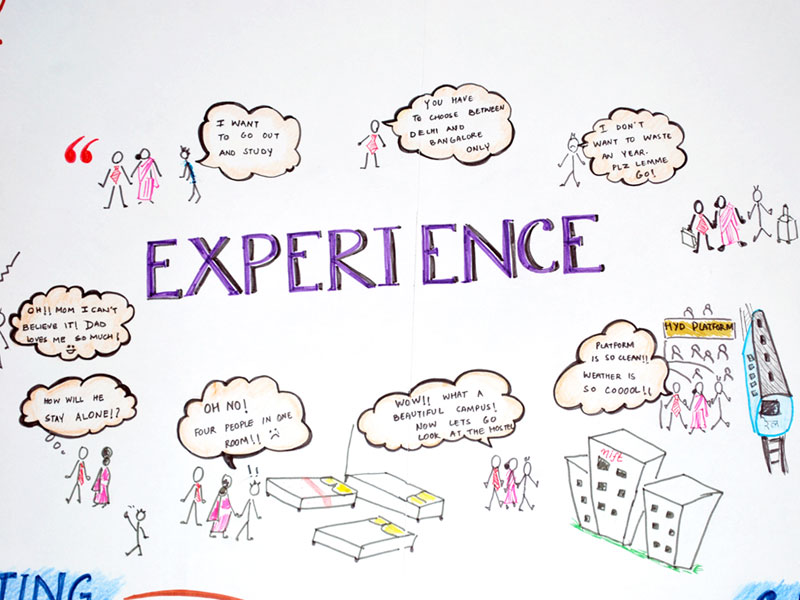 “
I WANT
TO GO OUT
AND STUDY
YOU HAVE
TO CHOOSE BETWEEN
DELHI AND
BANGALORE
ONLY
I DON'T
WANT TO WASTE
AN YEAR.
PLZ LEMME
GO!
EXPERIENCE
HYD PLATFORM
PLATFORM
IS SO CLEAN!!
WEATHER IS
SO COOOOL!!
nift
WOW!! WHAT A
BEAUTIFUL CAMPUS!
NOW LETS GO
LOOK AT THE HOSTEL
OH NO!
FOUR PEOPLE IN ONE
ROOM!!
!!
OH!! MOM I CAN'T
BELIEVE IT! DAD
LOVES ME SO MUCH!
HOW WILL HE
STAY ALONE!?
TING